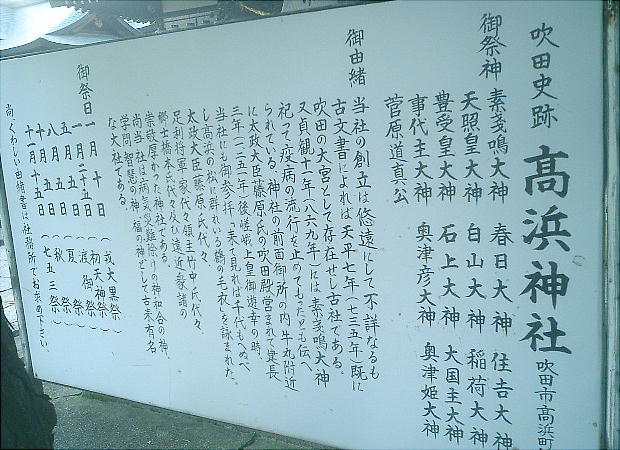 吹田史跡 高浜神社 吹田市高浜町
御祭神 素戔嗚大神 春日大神 住吉大神
天照皇大神 白山大神 稲荷大神
豊受皇大神 石上大神 大国主大神
事代主大神 奥津彦大神 奥津姫大神
菅原道真公
御由緒 当社の創立は悠遠にして不詳なるも
古文書によれば天平七年(七三五年)既に
吹田の大宮として存在せし古社である。
又貞観十一年(八六九年)には素戔嗚大神
祀って疫病の流行を止めてもったとも伝へ
られている。神社の前面御所の内牛丸附近
に太政大臣藤原氏の吹田殿営まれて建長
三年(一二五一年)後嵯峨上皇御遊幸の時、
当社にも御参拝「来て見れば千代もへぬべ
し高浜の松に群れいる鶴の毛衣」と詠まれた。
太政大臣藤原氏代々、
足利将軍家代々領主竹中氏代々
郷士橋本氏代々及び遠近家諸の
崇敬厚かった神社である。
尚当社は病気災難除けの神和合の神、
学問、智慧の神、福の神として古来有名
な大社である。
御祭日 一月十日 (戎大黒祭)
一月二十五日 (初天神祭)
五月五日 (渡御祭)
八月五日 (夏祭)
十月五日 (秋祭)
十一月十五日 (七五三祭)
尚、くわしい由緒書は社務所でお求め下さい。